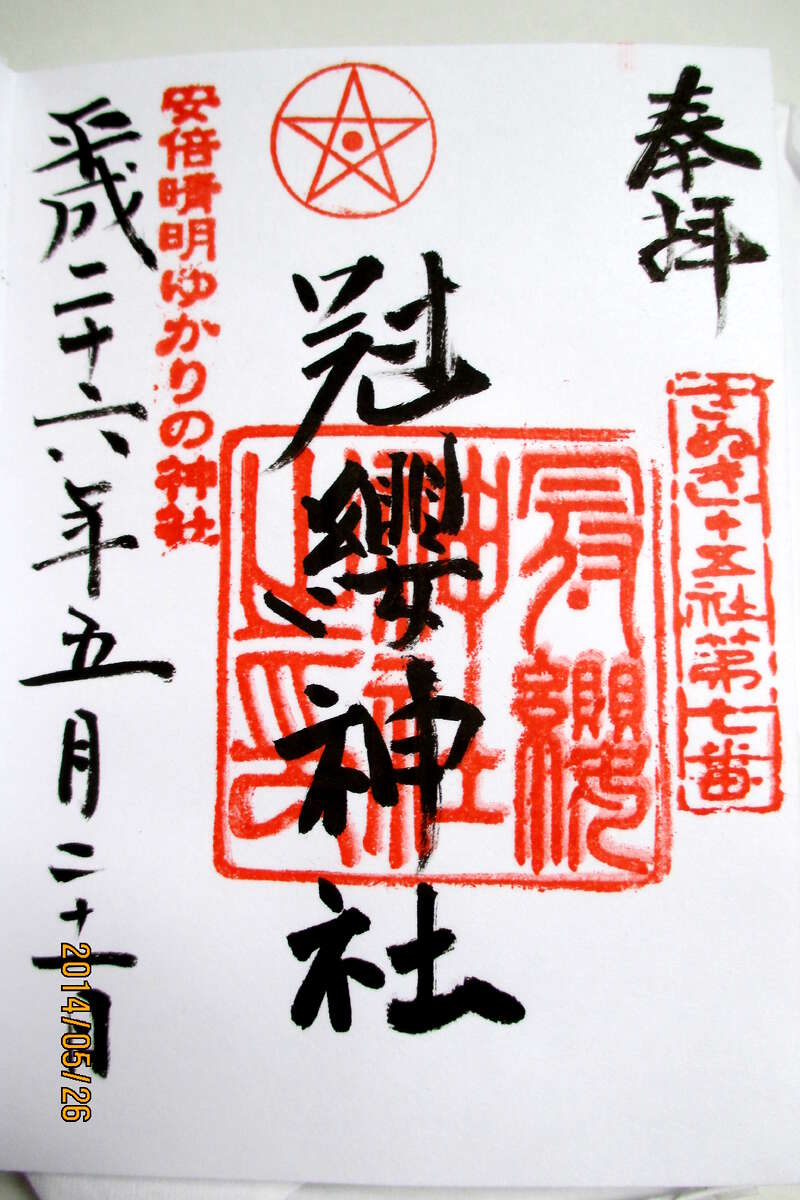 奉拝
さぬき十五社第七番
冠纓神社
冠纓
神社
之印
安倍晴明ゆかりの神社
平成二十六年五月二十一日
2014/05/26